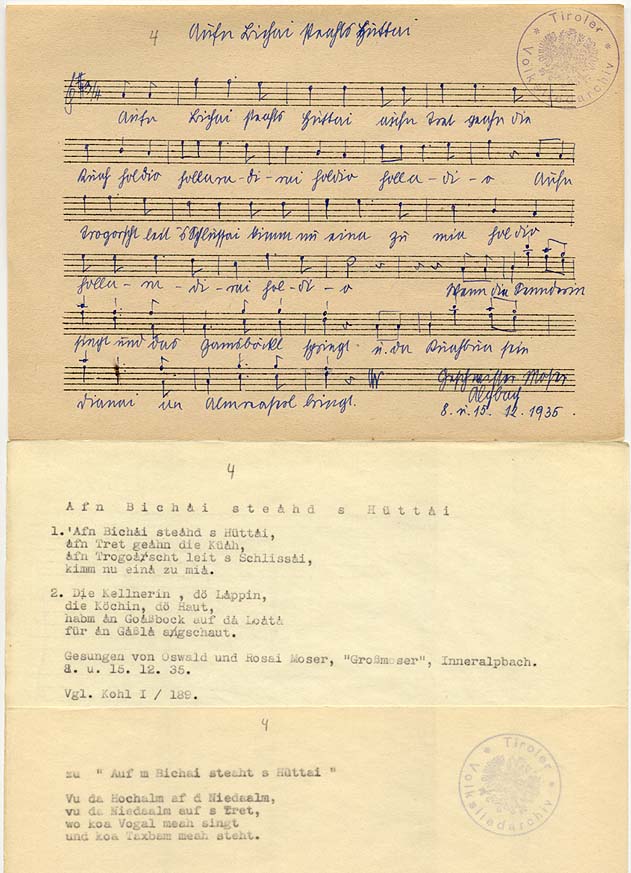 4
Aufn Bichai steahts Hüttai
Tiroler Volksliedarchiv
3/4
Aufn Bichai steahts Hüttai aufn Tret geahn die
Küah holdio hollara-di-rai holdio holla-di-o Aufn
Trogorscht leit 's Schlüssai kimm nu eina zu mia holdio
holla-ra-di-rai hol-di-o Wenn die Senndarin
singt und das Gamsböckl springt u. da Kuahbua sein
dianai an Almrausch bringt.
Geschwister Moser
Alpbach
8. u. 15. 12. 1935.
4
Afn Bichåi steåhd s Hüttåi
1. 'Åfn Bichåi steåhd s Hüttåi,
åfn Tret geåhn die Küåh,
åfn Trogoårscht leit s Schlissåi,
kimm nu einå zu miå.
2. Die Kellnerin , dö Lappin,
die Köchin, dö Haut,
habm ån Goåßbock auf då Loåtå
für ån Gåßlå ångschaut.
Gesungen von Oswald und Rosai Moser, "Großmoser", Inneralpbach.
8. u. 15. 12. 35.
Vgl. Kohl I / 189.
4
zu " Auf m Bichai steaht s Hüttai "
Vu da Hochalm af d Niedaalm,
vu da Niedaalm auf s Tret,
wo koa Vogal meah singt
und koa Taxbam meah steht.
Tiroler Volksliedarchiv